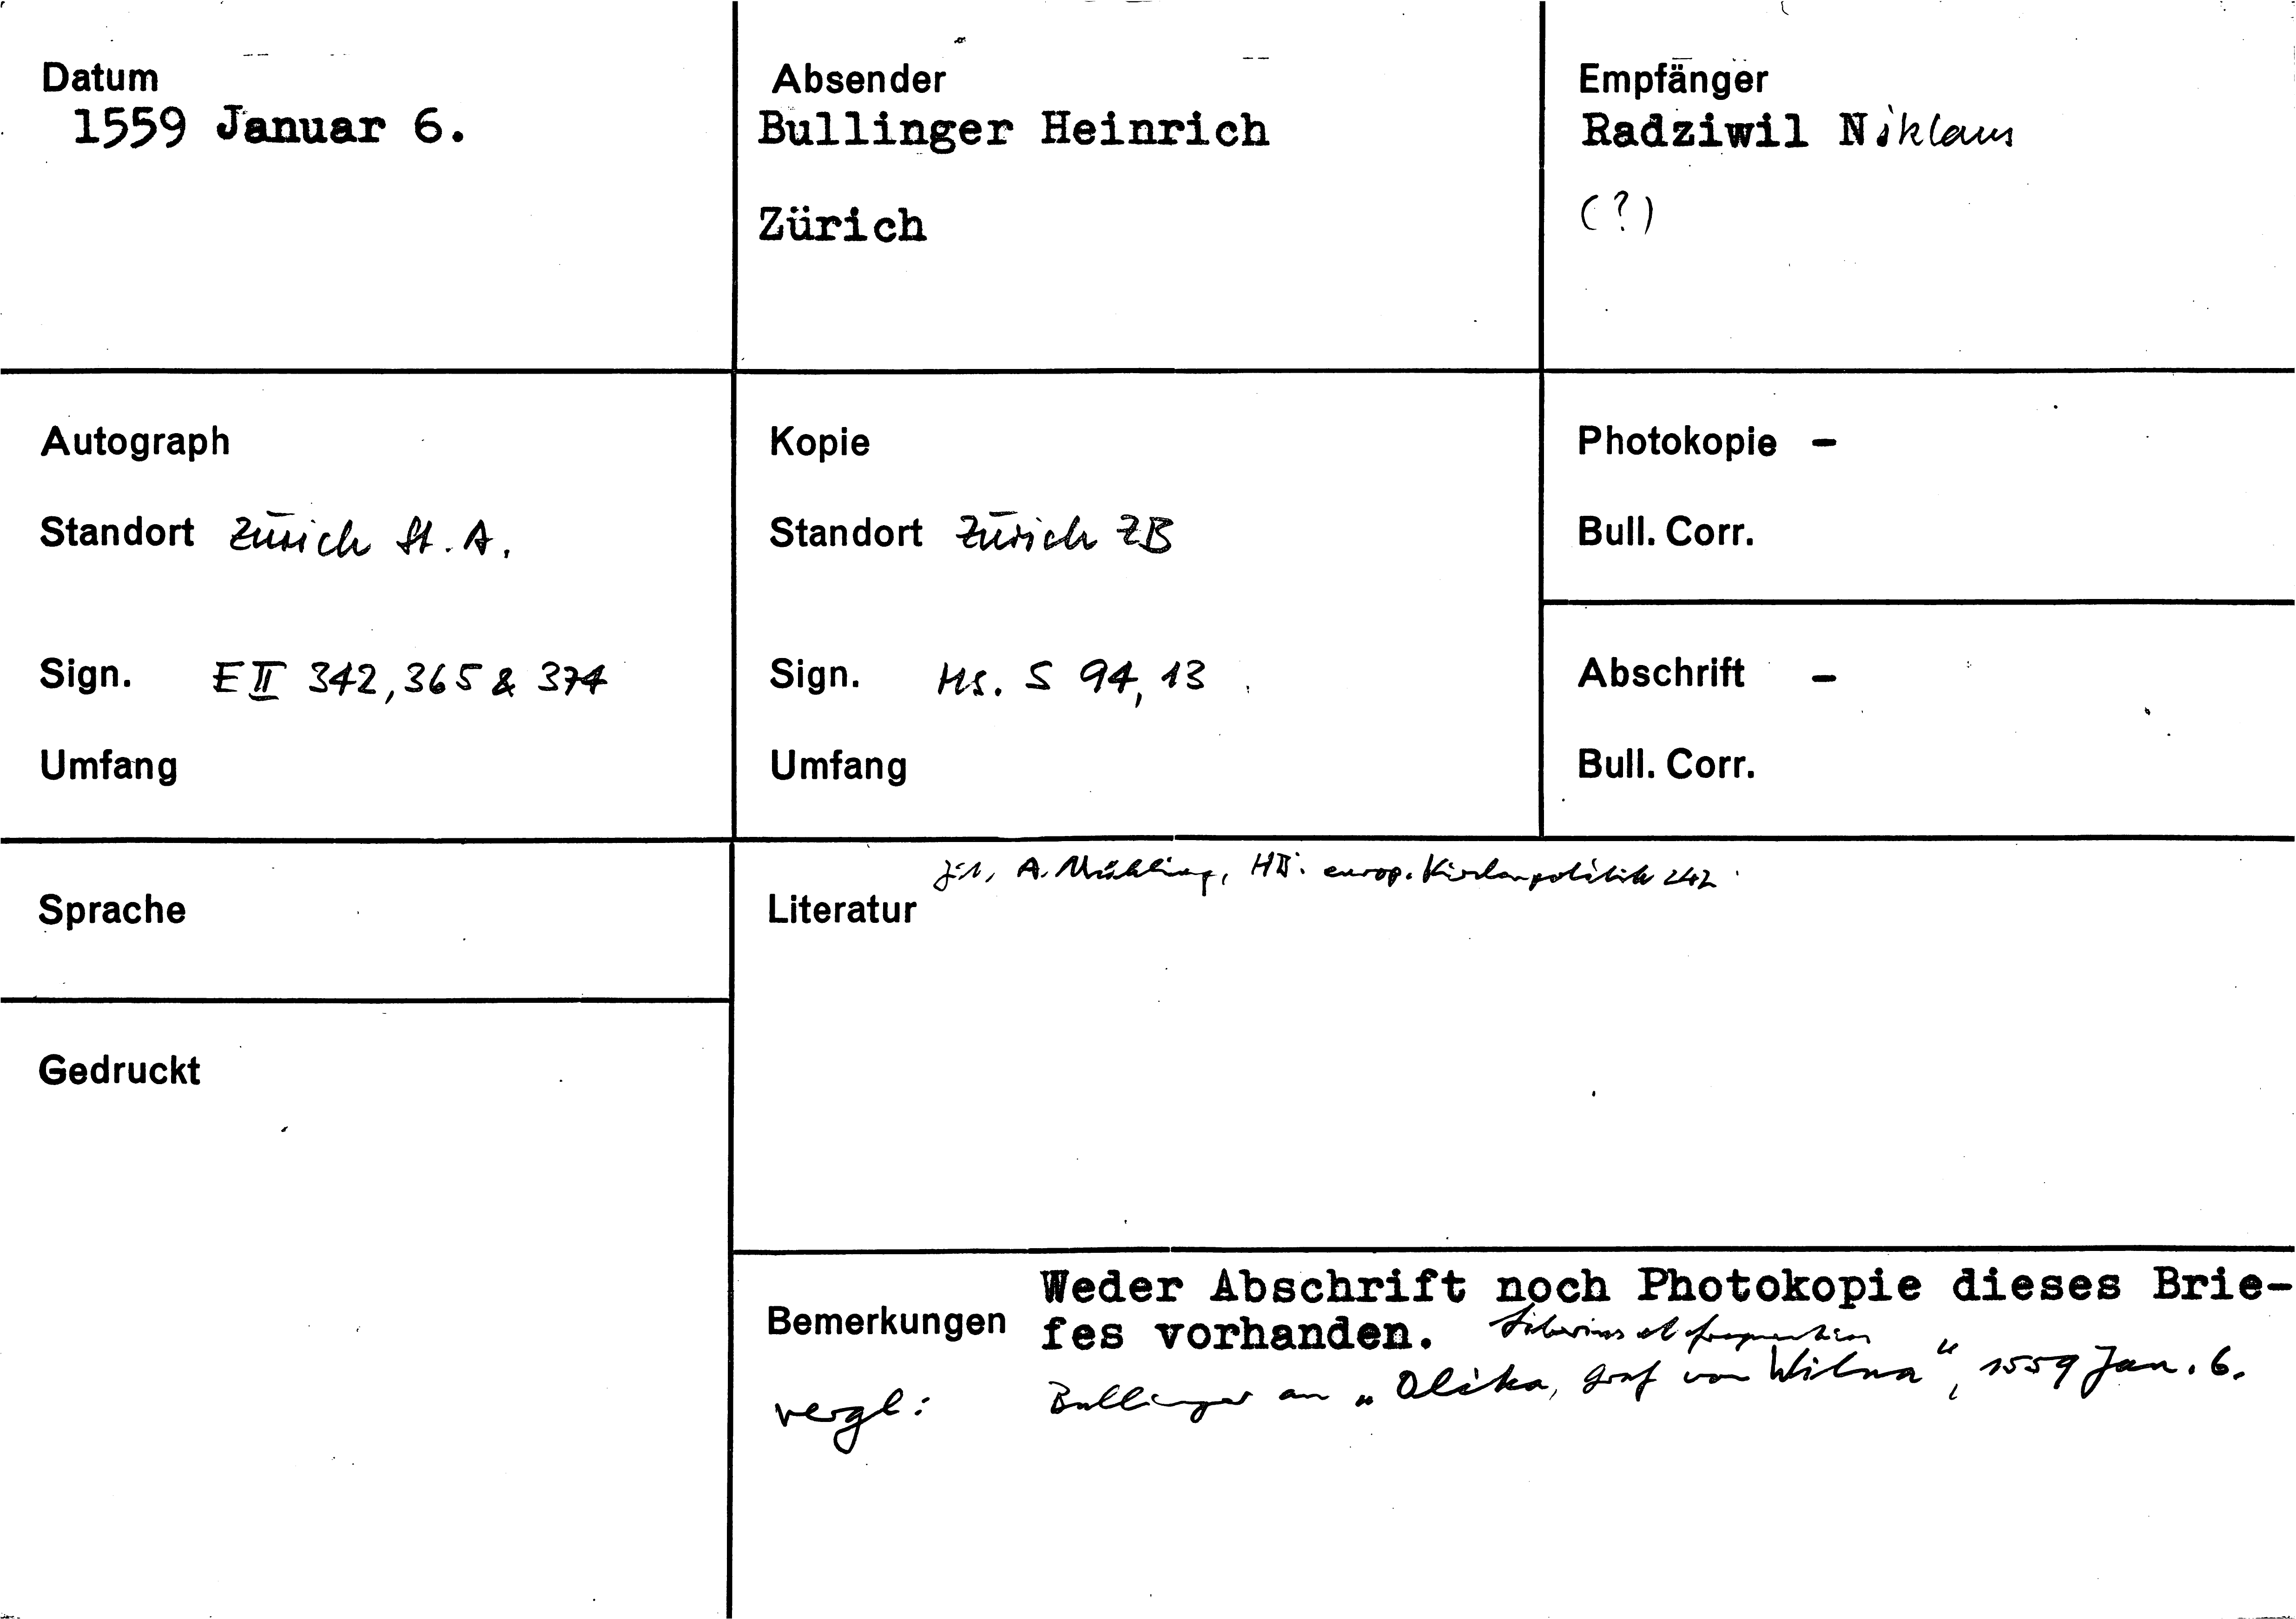 Datum
1559 Januar 6.
Absender
Bullinger Heinrich
Zürich
Empfänger
Radziwil Niklaus
(?)
Autograph
Standort Zürich St. A.
Sign. E II 342, 365 & 374
Umfang
Kopie
Standort Zürich ZB
Sign. Hs. S 94, 13
Umfang
Photokopie –
Bull. Corr.
Abschrift –
Bull. Corr.
Sprache
Gedruckt
A. Mühling, HB. europ. Kirchenpolitik 242
Literatur
Bemerkungen
Weder Abschrift noch Photokopie dieses Brie-
fes vorhanden.
vergl: Bullinger an „Olika, Graf von Wilna“, 1559 Jan. 6.